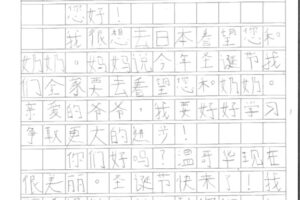 您好！
我很想去日本看望您和
奶奶。妈妈说今年圣诞节我
们全家要去看望您和奶奶。
亲爱的爷爷。我要好好学习
争取更大的进步！
你们好吗？温哥华现在
很美丽。圣诞节快来了！我